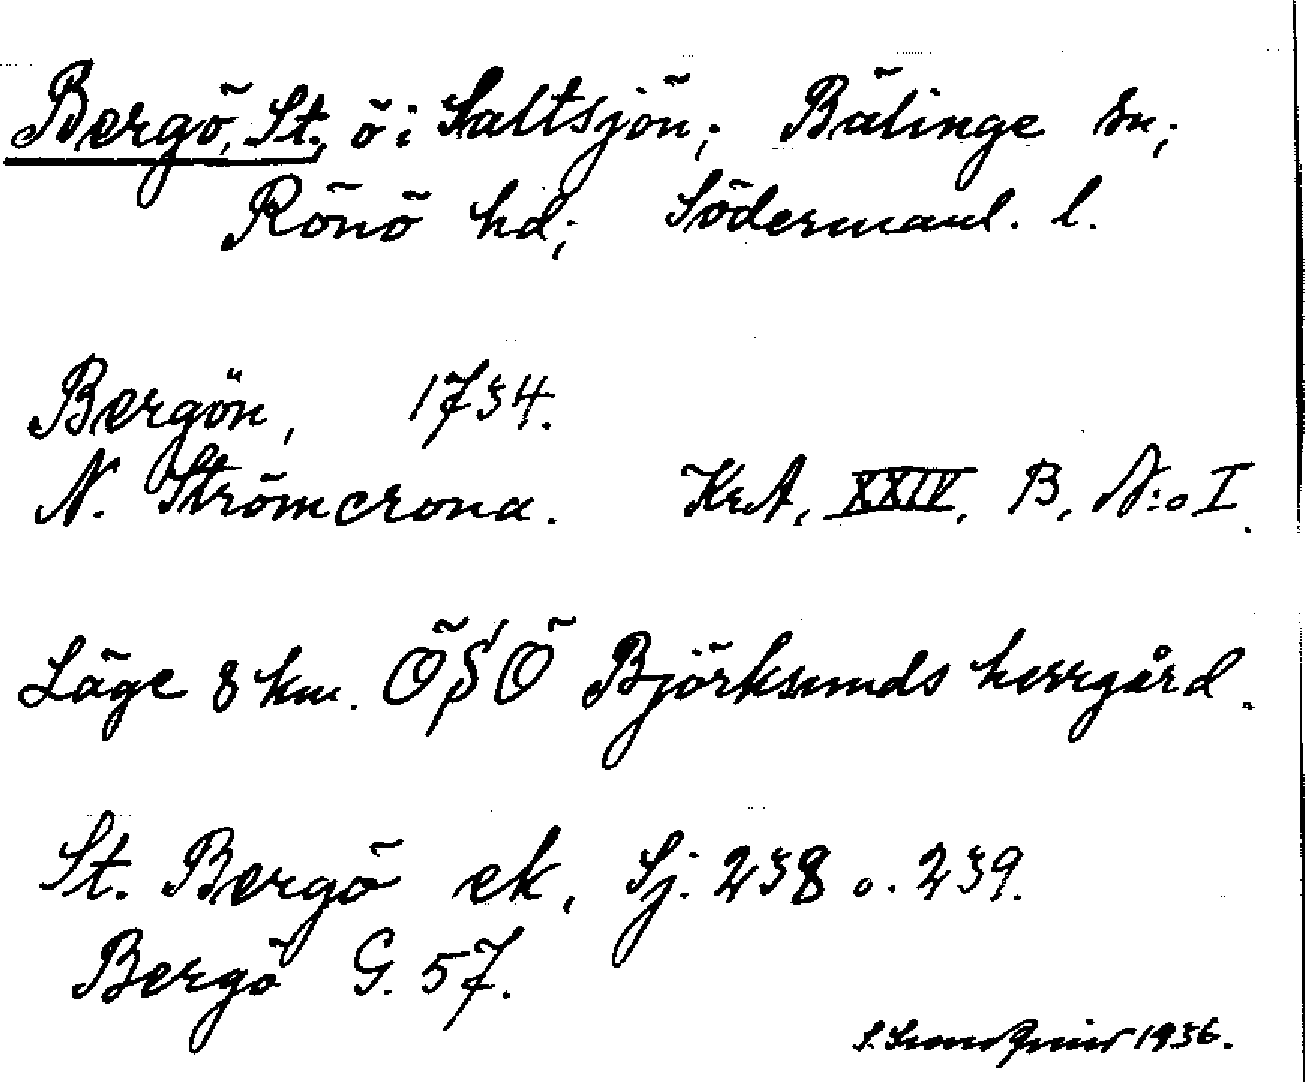 Bergö, St., ö i Saltsjön; Bälinge sn;
Rönö hd; Södermanl. l.
Bergön, 1734.
N. Strömcrona. KrA, XXIV, B, N:o I.
Läge 8 km. ÖSÖ Björksunds herrgård.
St. Bergö ek, Sj. 238 o. 239.
Bergö G. 57.
1936.